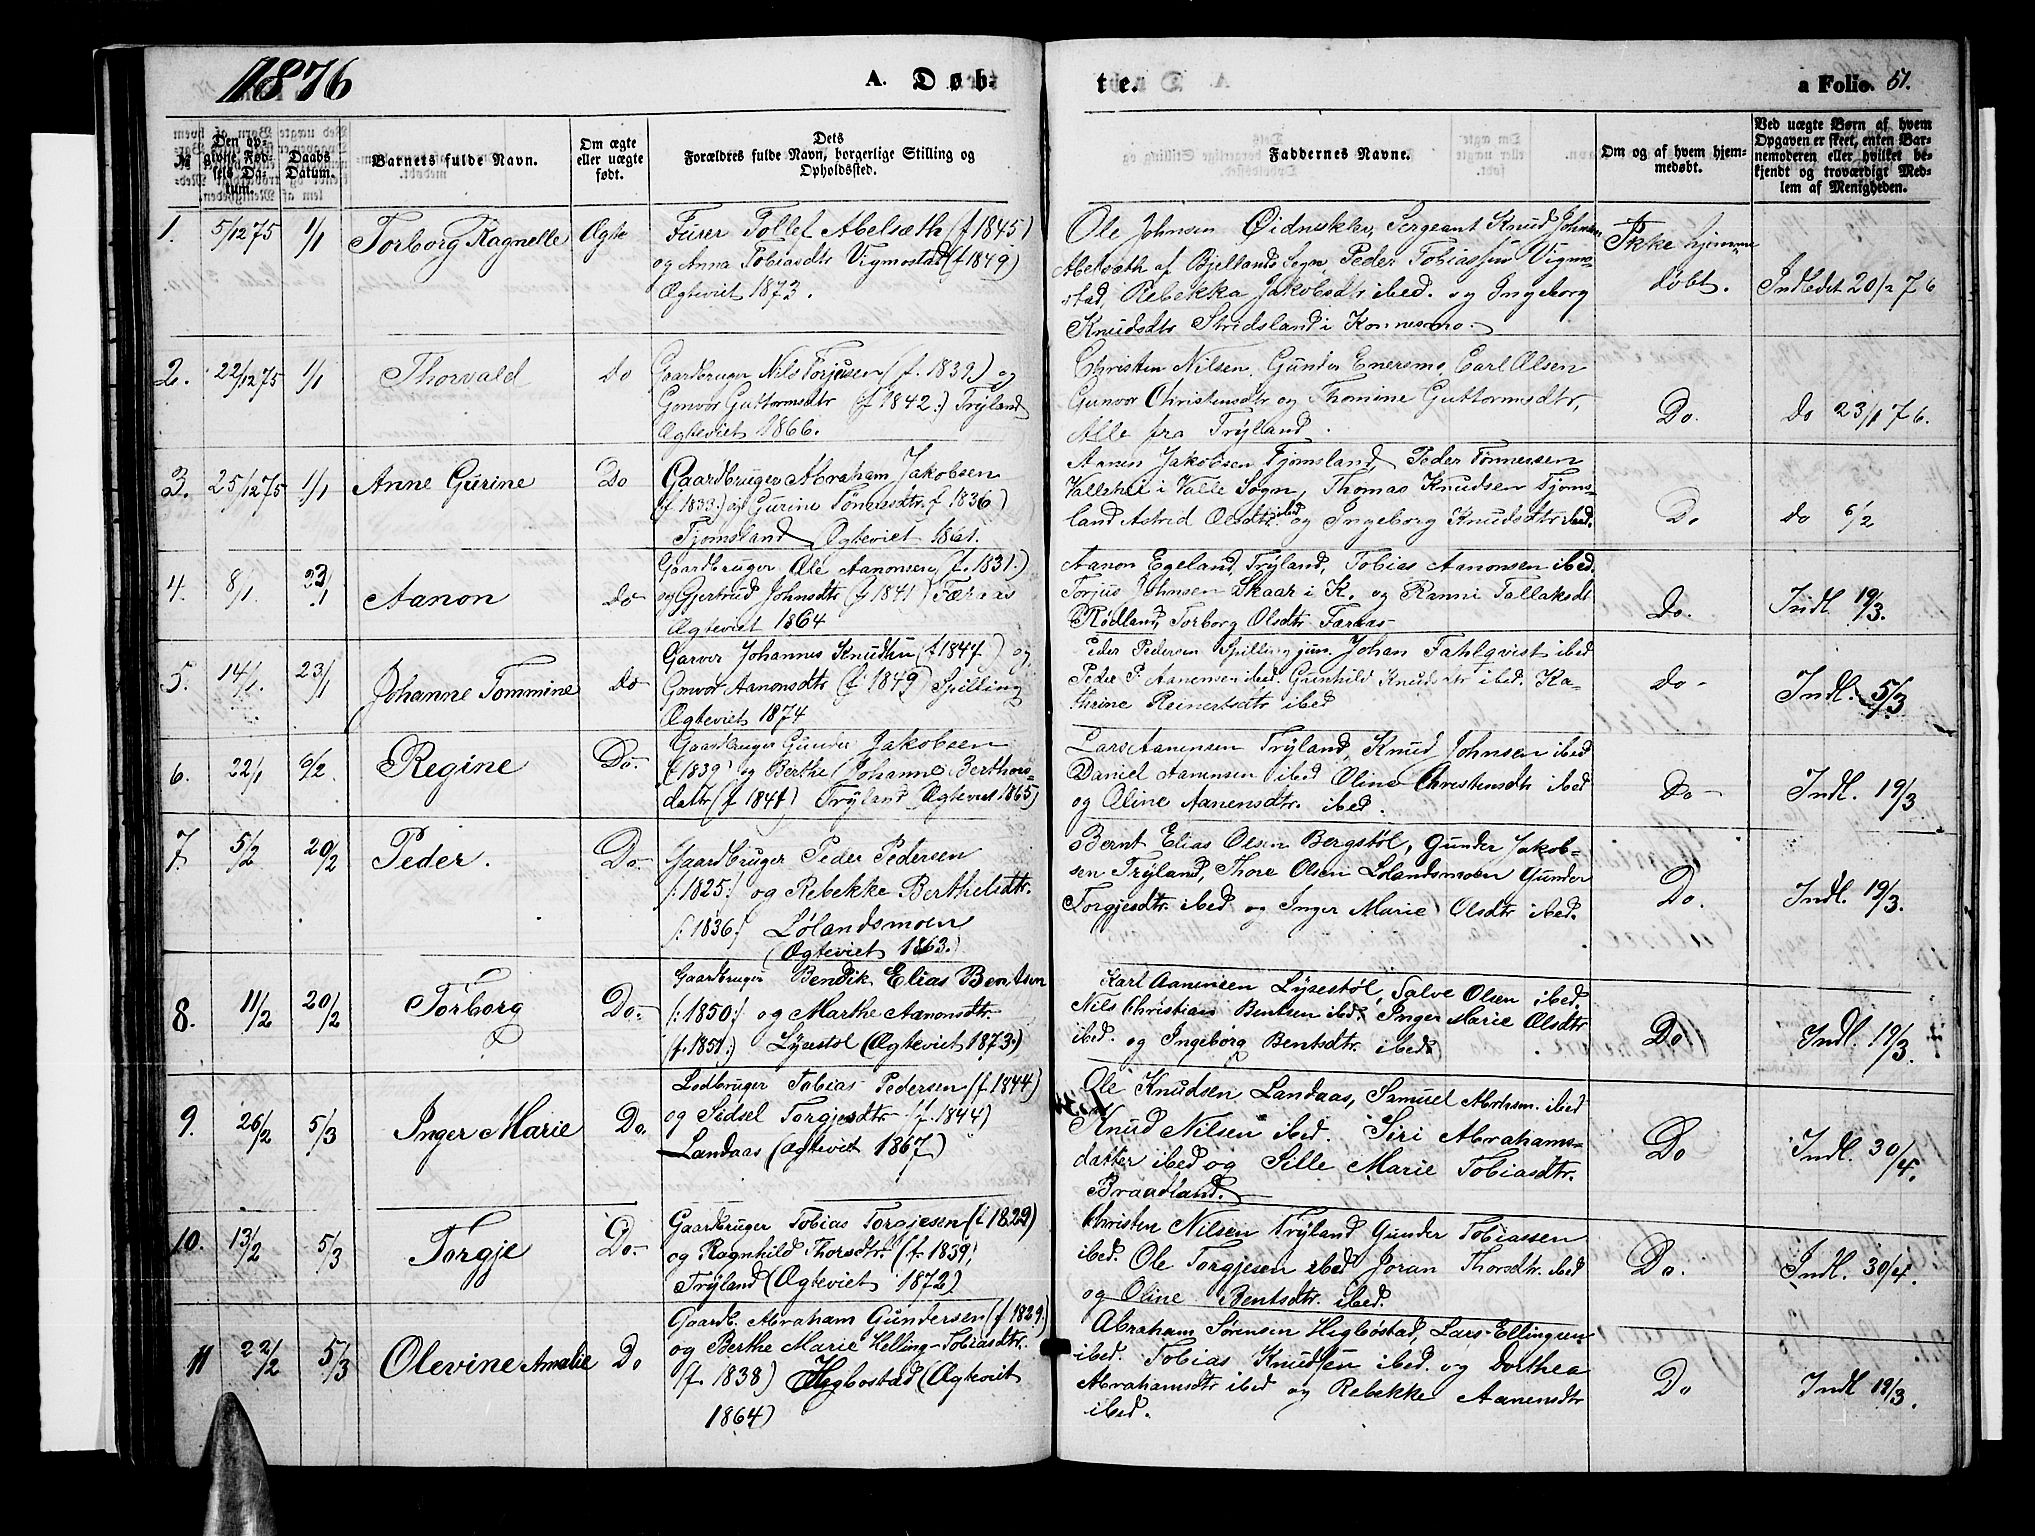 1876
A. Døb-
te.
a Folio. 51.
№
Den opgivne Fødsels Datum.
Daabs Datum.
Barnets fulde Navn.
Om ægte eller uægte født.
Dets Forældres fulde Navn, borgerlige Stilling og Opholdssted.
Faddernes Navne.
Om og af hvem hjemmedøbt.
Ved uægte Børn af hvem Opgaven er skeet, enten Barnemoderen eller hvilket bekjendt og troværdigt Medlem af Menigheden.
1. 5/12 75 1/1 Torborg Ragnelle Ægte
Furer Tollef Abelsæth (f 1845)
og Anna Tobiasdtr Vigmostad (f 1849)
Ægteviet 1873.
Ole Johnsen Sergeant Knud Johnsen
Abelsæth af Bjellands Sogn, Peder Tobiassen Vigmo-
stad, Rebekka Jakobsdtr ibed. og Ingeborg
Knudsdtr Stridsland i Konnesmo.
Ikke hjemme
døbt.
Indledet 20/2 76
2. 22/12 75 1/1 Thorvald Do
Gaardbruger Nils Torjesen (f. 1839) og
Gonvor Guttormsdtr (f 1842.) Trÿland
Ægteviet 1866.
Christen Nilsen, Gunder Enersmo, Carl Olsen
Gunvor Christensdtr og Thomine Guttormsdtr,
Alle fra Trÿland.
Do.
Do 23/1 76.
3. 25/12 75 1/1 Anne Gurine Do
Gaardbruger Abraham Jakobsen
(f. 1833.) og Gurine Tønnesdtr. f 1836)
Fjomsland Ægteviet 1861.
Aanen Jakobsen Fjomsland, Peder Tønnessen
i Valle Sogn, Thomas Knudsen Fjoms-
land Astrid Olsdtr. ibed og Ingeborg Knudsdtr ibed.
Do
Do 6/2
4. 8/1 23/1 Aanon Do
Gaardbruger Ole Aanonsen (f. 1831.)
og Gjertrud Johnsdtr (f 1841) Færaas
Ægteviet 1864
Aanon Egeland, Trÿland, Tobias Aanonsen ibed.
Torjus Johnsen Skaar i K. og Ranni Tallaksdt
Rødland, Torborg Olsdtr Færaas
Do.
Indl. 19/3.
5. 14/1. 23/1 Johanne Tommine Do
Garver Johannes Knudsen (f 1847) og
Gonvor Aanonsdtr (f. 1849) Spilling
Ægteviet 1874
Peder Pedersen Spilling jun. Johan Fahlqvist ibed
Peder P. Aanensen ibed Gunhild Knudsdtr ibed. Ka-
thrine Reinertsdtr ibed
Do
Indl. 5/3
6. 22/1 6/2. Regine Do.
Gaardbruger Gunder Jakobsen
f 1839 og Berthe Johanne Berthors-
dattr (f. 1841) Trÿland Ægteviet 1865)
Lars Aanensen Trÿland, Knud Johnsen ibed
Daniel Aanensen ibed Oline Christensdtr ibed
og Oline Aanensdtr. ibed.
Do
Indl. 19/3
7. 5/2 20/2 Peder. Do.
Gaardbruger Peder Pedersen
/: 1825:/ og Rebekke Berthelsdtr.
/: 1836:/ Lølandsmoen
(Ægteviet 1863.)
Bernt Elias Olsen Bergstøl, Gunder Jakob-
sen Trÿland, Thore Olsen Lolandsmoen Gunder
Torgjesdtr. ibed og Inger Marie Olsdtr ibed.
Do.
Indl. 19/3.
8. 11/2 20/2 Torborg Do.
Gaardbruger Bendik Elias Bentsen
/: 1850:/ og Marthe Aanonsdtr.
(f. 1851:) Lÿsestøl (Ægteviet 1873.)
Karl Aanensen Lÿsestøl, Salve Olsen ibed.
Nils Christian Bentsen ibed. Inger Marie Olsdtr
ibed. og Ingeborg Bentsdtr. ibed.
Do
Indl. 19/3.
9. 26/2 5/3 Inger Marie Do.
Lodbruger Tobias Pedersen (f. 1844)
og Sidsel Torgjesdtr (f. 1844)
Landaas (Ægteviet 1867)
Ole Knudsen Landaas, Samuel Abrahm. ibed
Knud Nilsen ibed. Siri Abrahams-
datter ibed og Sille Marie Tobiasdtr.
Braadland.
Do
Indl. 30/4.
10. 13/2 5/3 Torgje Do.
Gaardbruger Tobias Torgjesen (f 1829)
og Ragnhild Thorsdtr. (f. 1839,
Trÿland (Ægteviet 1872)
Christen Nilsen Trÿland Gunder Tobiassen
ibed. Ole Torgjesen ibed Joran Thorsdtr. ibed
og Oline Bentsdtr. ibed.
Do.
Indl. 30/4.
11 22/2 5/3 Olevine Amalie Do
Gaardb. Abraham Gundersen (f 1829.)
og Berthe Marie Helling-Tobiasdtr.
(f. 1838) Høgbostad (Ægteviet
1864)
Abraham Sørensen Higbøstad, Lars Ellingsen
ibed. Tobias Knudsen ibed. og Dorthea
Abrahamsdtr ibed og Rebekke Aanensdtr
ibed.
Do
Indl 19/3.